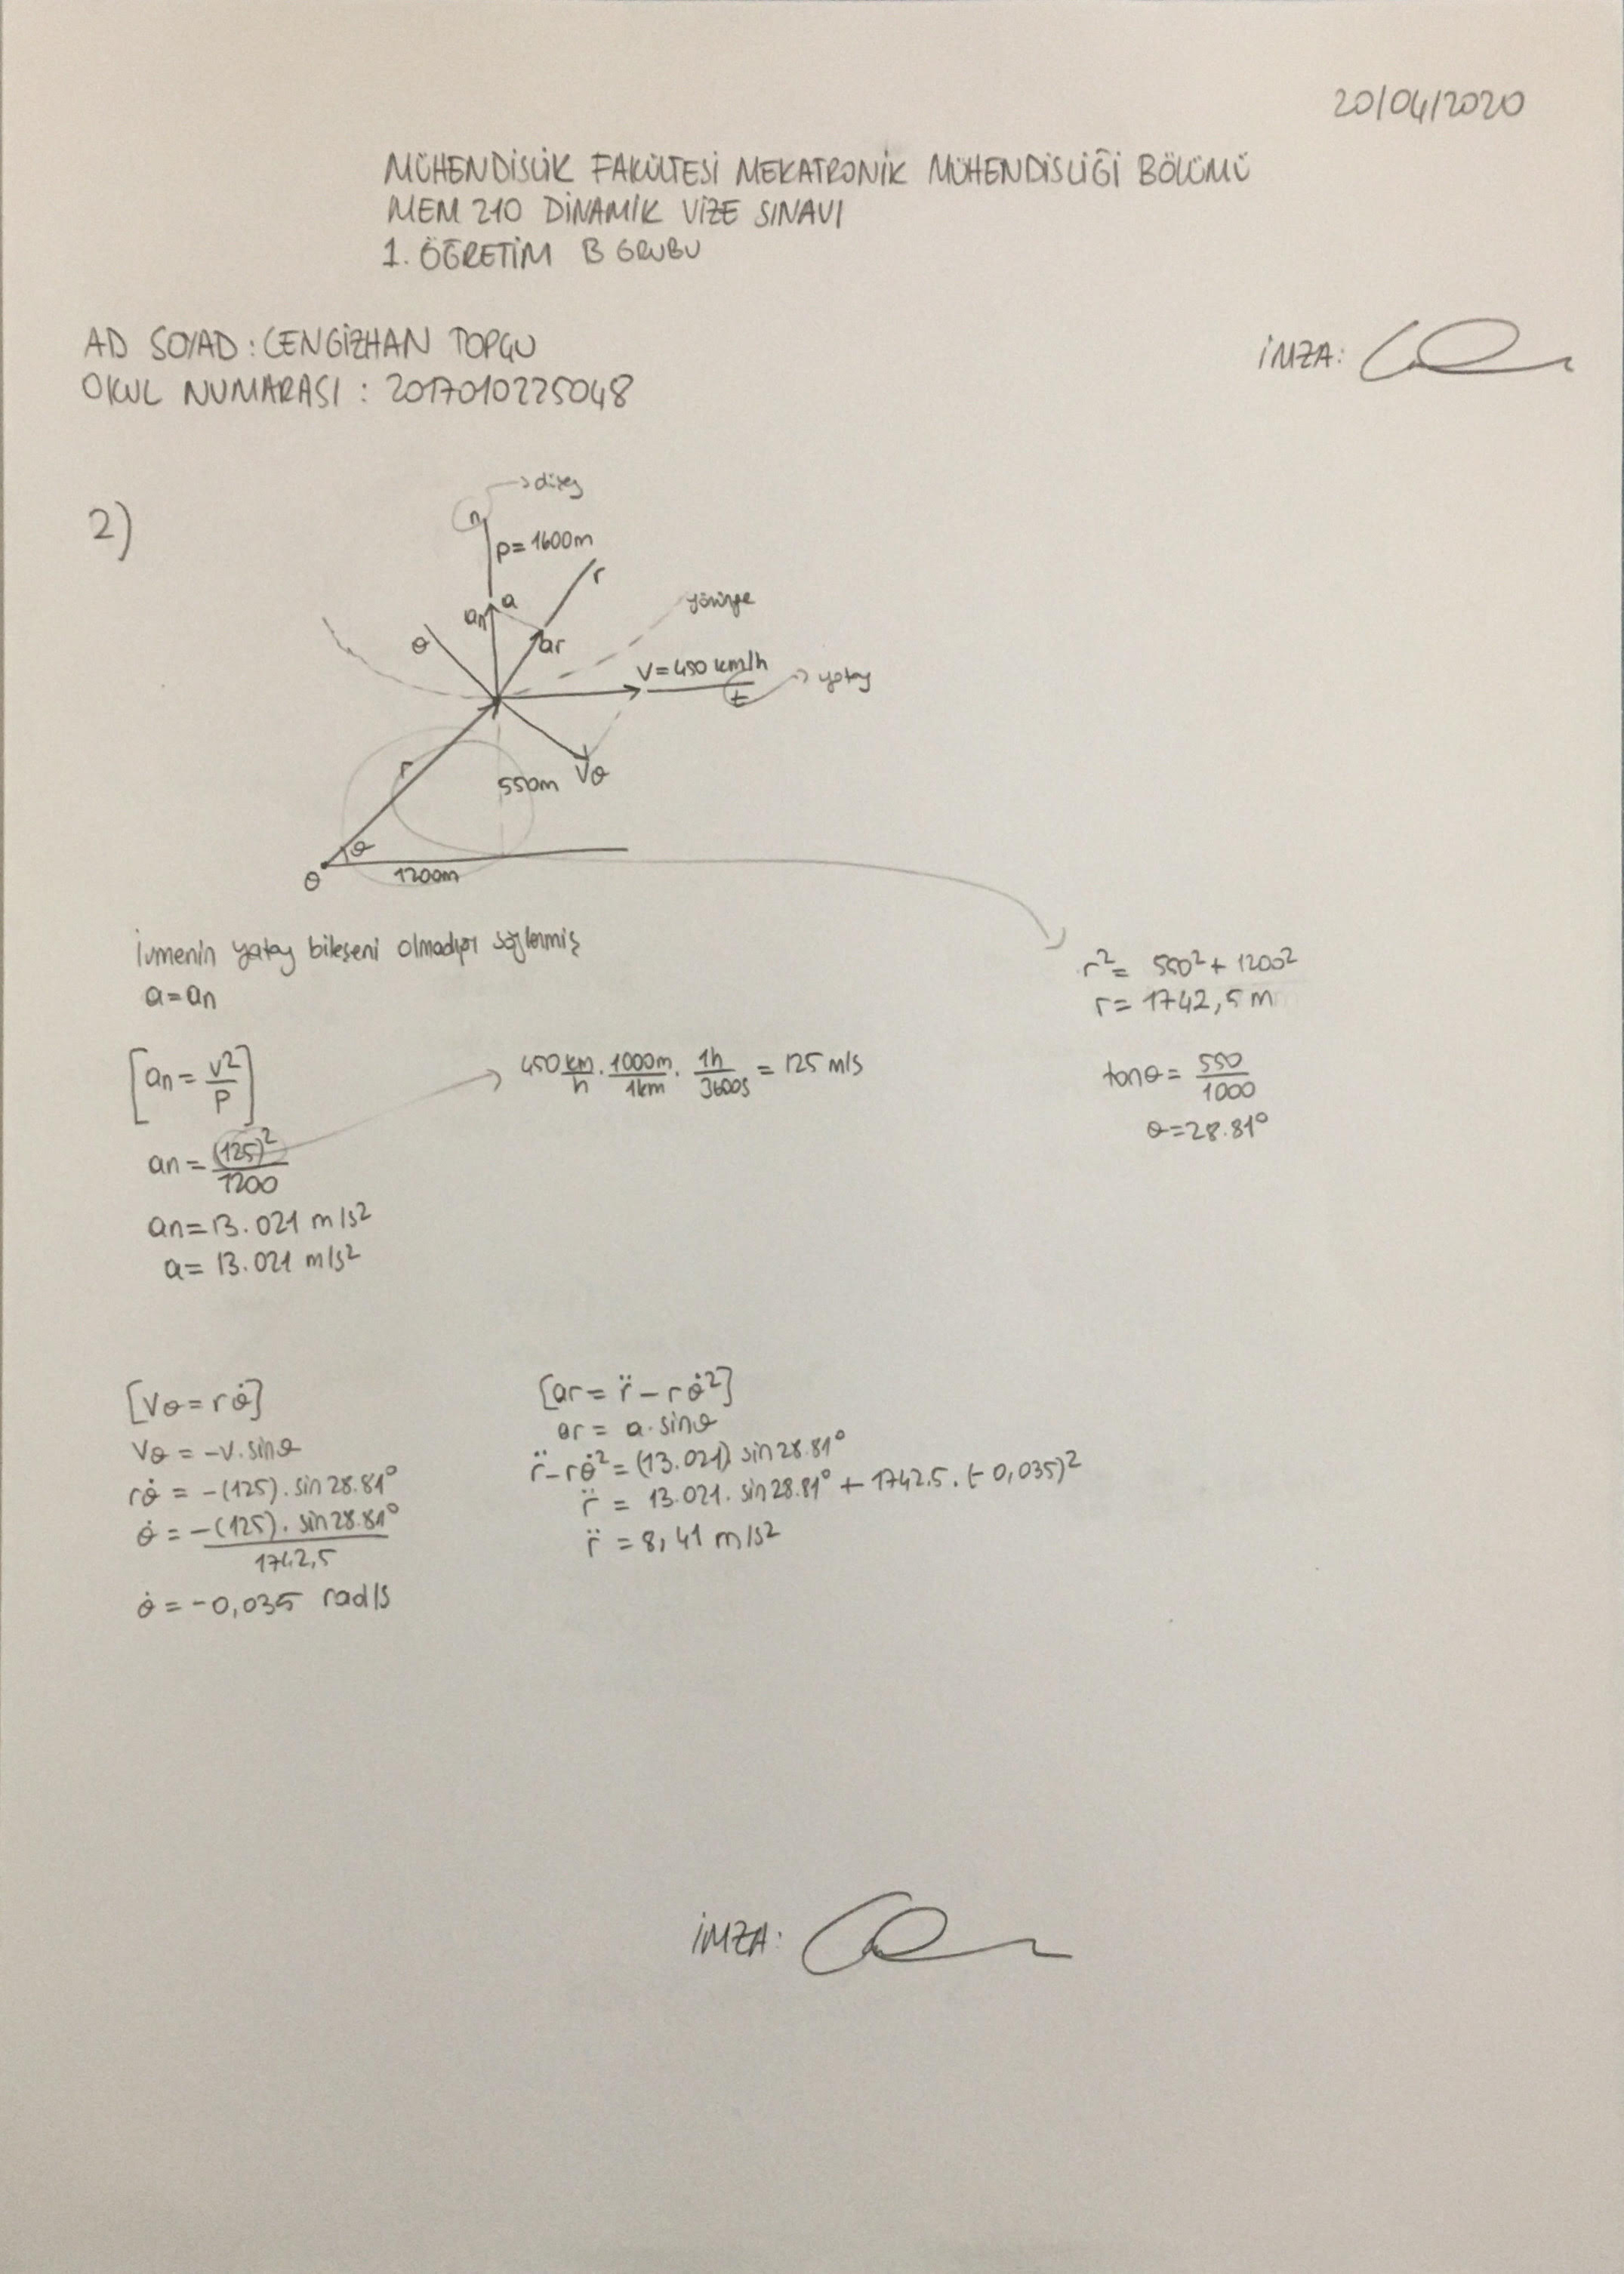 20/04/2020
MÜHENDİSLİK FAKÜLTESİ MEKATRONİK MÜHENDİSLİĞİ BÖLÜMÜ
MEM 210 DİNAMİK VİZE SINAVI
1. ÖĞRETİM B GRUBU
AD SOYAD : CENGİZHAN TOPÇU
OKUL NUMARASI : 2017010225048
İMZA:
2)
→ düşey
n
ρ = 1600m
r
an
a
θ
ar
yörünge
V=450 km/h
t
→ yatay
r
550m
Vθ
θ
O
1200m
İvmenin yatay bileşeni olmadığı söylenmiş
a=an
[an = v²/ρ]
an = (125)²/1200
an = 13.021 m/s²
a = 13.021 m/s²
450 km/h · 1000m/1km · 1h/3600s = 125 m/s
r² = 550² + 1200²
r = 1742,5 m
tanθ = 550/1000
θ=28.81°
[Vθ = rθ̇]
Vθ = -V.sinθ
rθ̇ = -(125).sin28.81°
θ̇ = -(125).sin28.81°/1742,5
θ̇ = -0,035 rad/s
[ar = r̈ - rθ̇²]
ar = a.sinθ
r̈ - rθ̇² = (13.021).sin28.81°
r̈ = 13.021.sin28.81° + 1742.5.(-0,035)²
r̈ = 8,41 m/s²
İMZA: